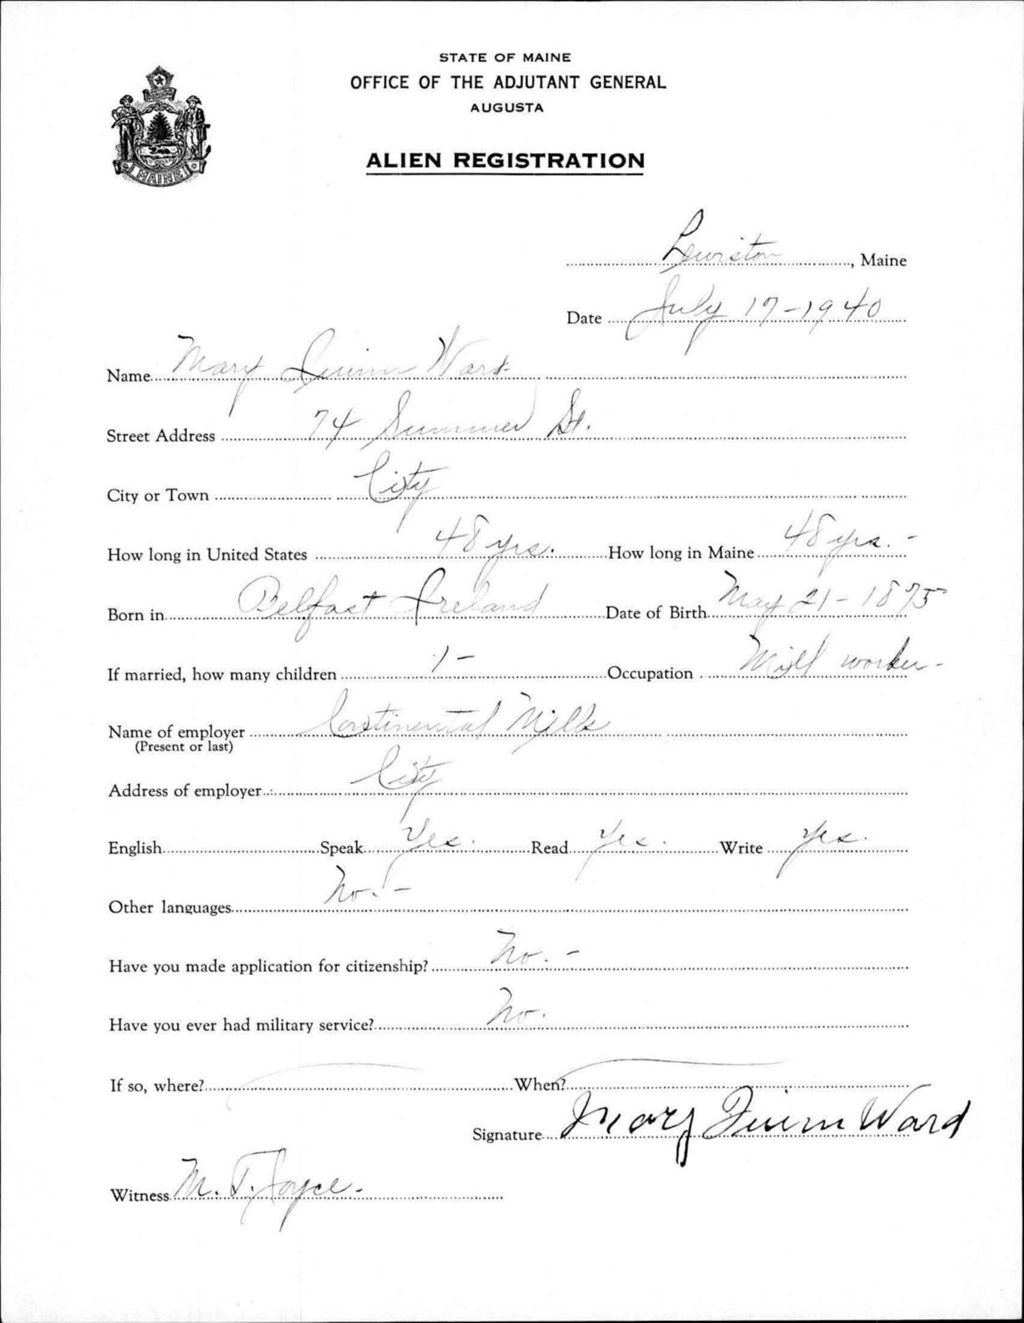 STATE OF MAINE
OFFICE OF THE ADJUTANT GENERAL
AUGUSTA
ALIEN REGISTRATION
MAINE
Lewiston, Maine
Date July 17-1940
Name Mary Quinn Ward
Street Address 74 Summer St.
City or Town City
How long in United States 48 yrs. How long in Maine 48 yrs.-
Born in Belfast Ireland Date of Birth May 21-1875
If married, how many children 1- Occupation Mill worker-
Name of employer Continental Mills
(Present or last)
Address of employer City
English Speak Yes. Read Yes. Write Yes.
Other languages No.-
Have you made application for citizenship? No.-
Have you ever had military service? No.
If so, where? When?
Signature Mary Quinn Ward
Witness M. T. Joyce.